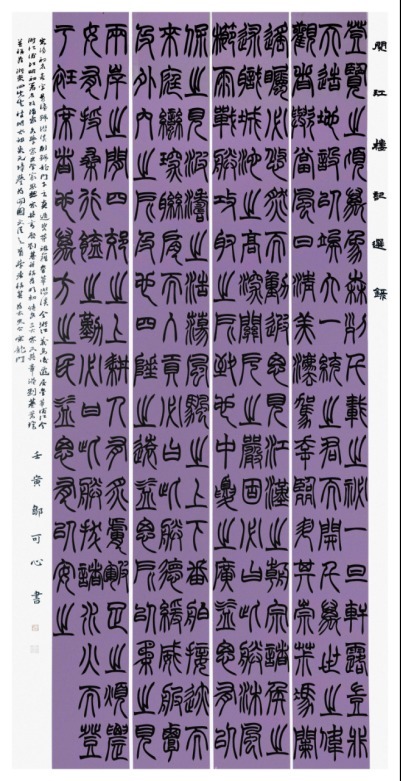 閱江樓記選錄
登覽之頃萬象森列千載之祕一旦軒露豈非
天造地設以俟大一統之君而開千萬世之偉
觀者歟當風日清美法駕幸臨升其崇椒憑闌
遙矚必悠然而動遐思見江漢之朝宗諸侯之
述職城池之高深關阨之嚴固必曰此朕沐風
櫛雨戰勝攻取之所致也中夏之廣益思有以
保之見波濤之浩蕩風帆之上下番舶接跡而
來庭蠻琛聯肩而入貢必曰此朕德綏威服覃
及外內之所及也四陲之遠益思有以柔之見
兩岸之間四郊之上耕人有炙膚皸足之煩農
女有捋桑行饁之勤必曰此朕拔諸水火而登
于衽席者也萬方之民益思有以安之
壬寅鄒可心書